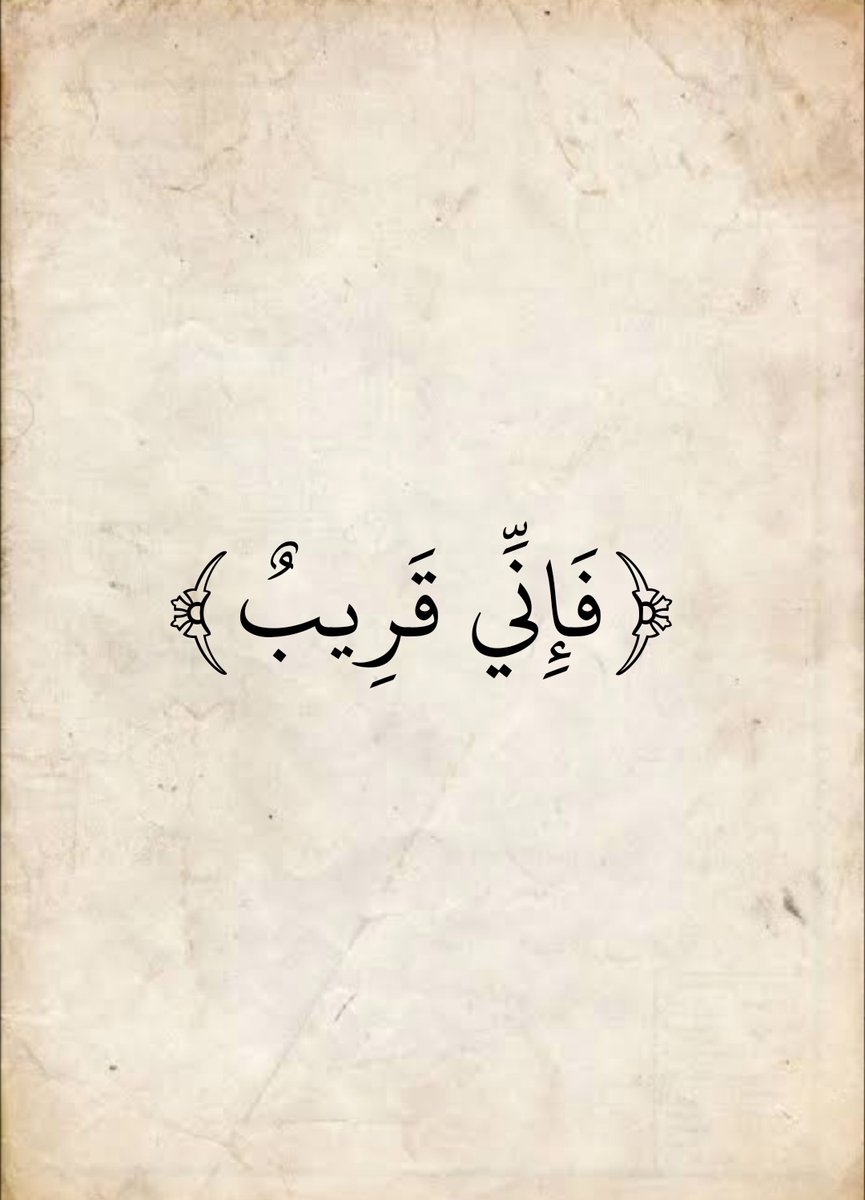 ﴿ فَإِنِّي قَرِيبٌ ﴾